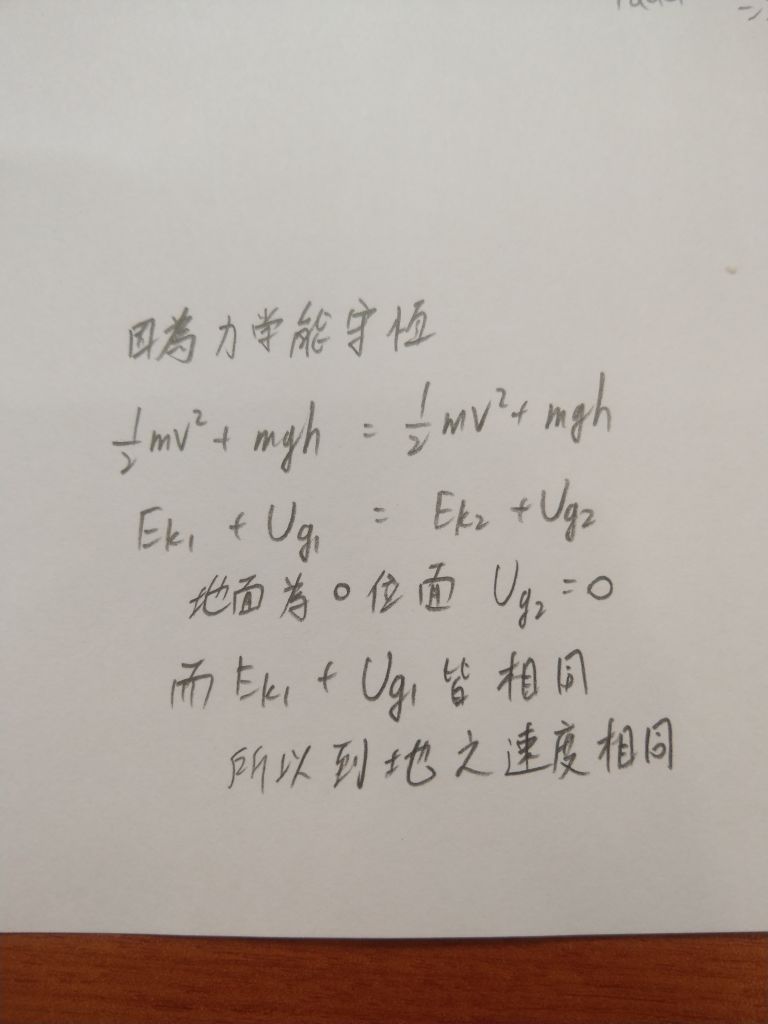 因為力学能守恆
½mv² + mgh = ½mv² + mgh
Ek₁ + Ug₁ = Ek₂ + Ug₂
地面為0位面 Ug₂ = 0
而Ek₁ + Ug₁皆相同
所以到地之速度相同